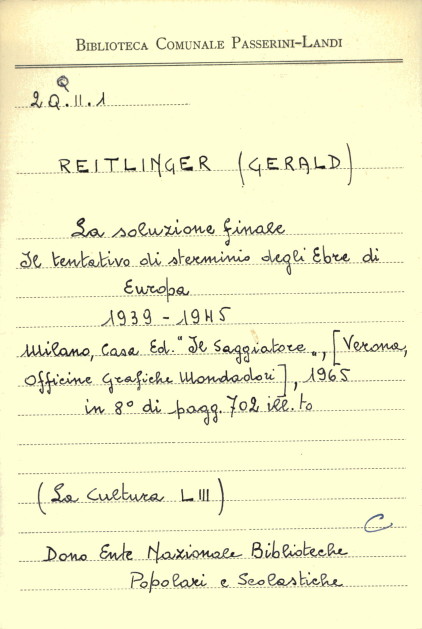 BIBLIOTECA COMUNALE PASSERINI-LANDI
2Q.II.1
REITLINGER (GERALD)
La soluzione finale
Il tentativo di sterminio degli Ebre di
Europa
1939 - 1945
Milano, Casa Ed. "Il Saggiatore", [Verona,
Officine Grafiche Mondadori], 1965
in 8° di pagg. 702 ill. to
(La Cultura LIII)
C
Dono Ente Nazionale Biblioteche
Popolari e Scolastiche